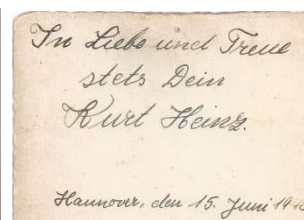 In Liebe und Treue
stets Dein
Kurt Heinz.
Hannover, den 15. Juni